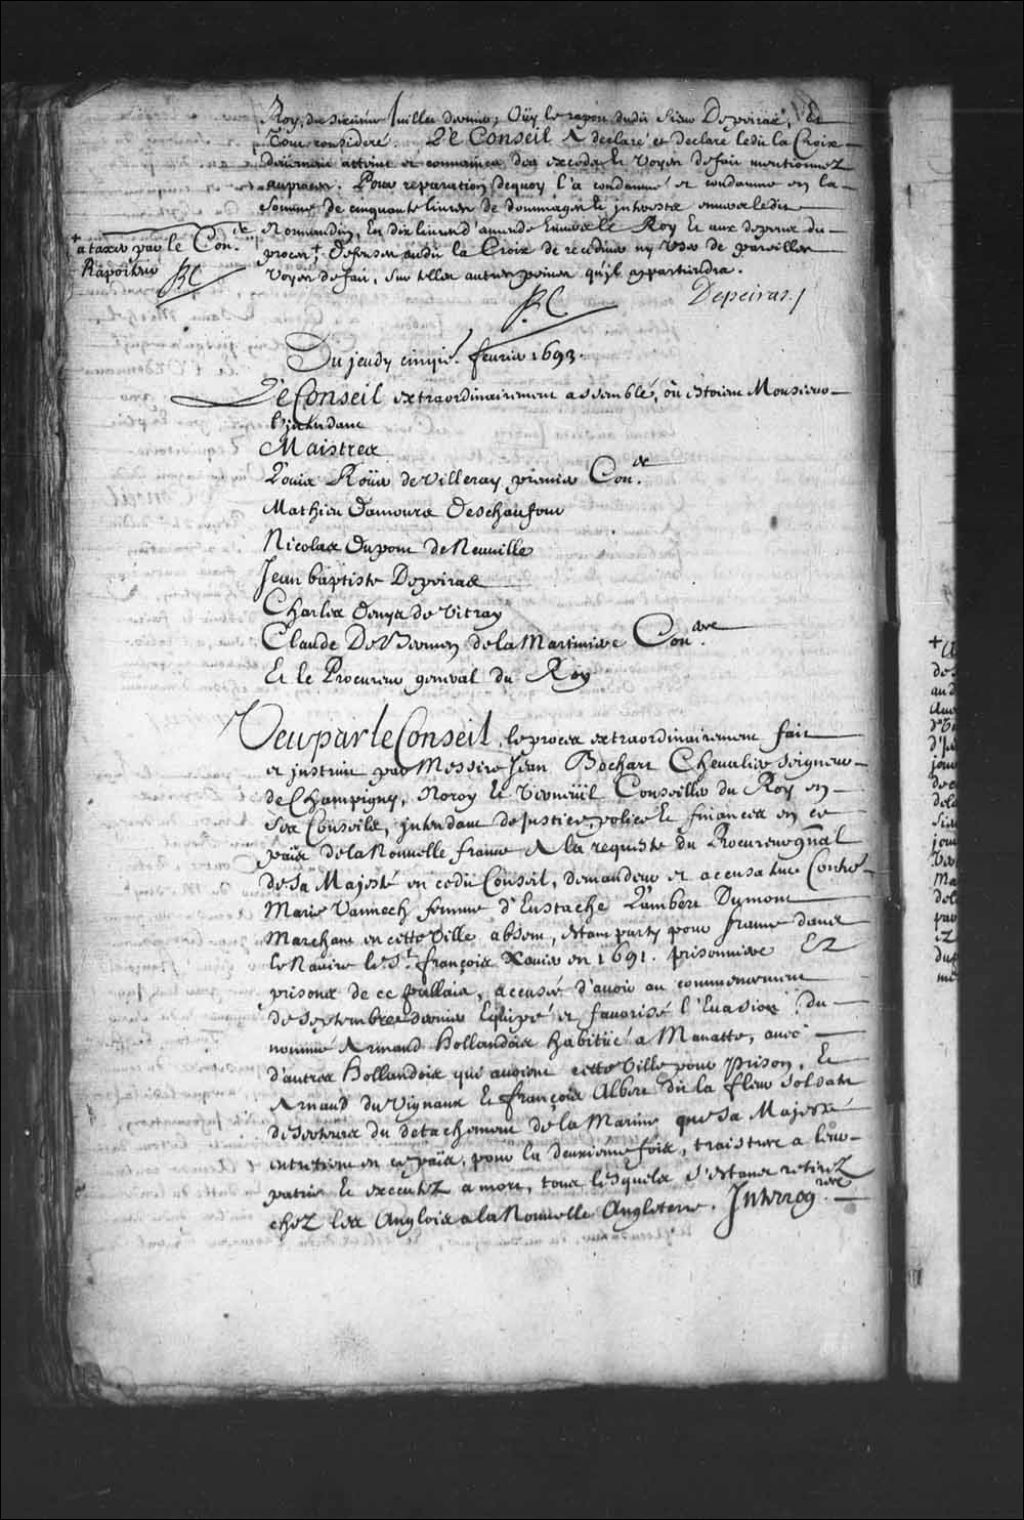 Roy, du sixiéme Juillet dernier; Oüy le raport dudit Sieur Depeiras, Et
Tout consideré. Le Conseil A declaré et declare ledit la Croix
deuement atteint et convaincu des excedz et voyes de fait mentionnez
au procez. Pour reparation dequoy l'a condamné et condamne en la
somme de cinquante livres de dommages et interestz envers ledit
Normandin, En dix livres d'amende Envers le Roy Et aux depens du
procez + Defenses audit la Croix de recidiver ny User de pareilles
voyes de fait, sur telles autres peines qu'il appartiendra.
+ a taxer par le Con.er
Raporteur
BC
BC
Depeiras./
Du jeudy cinqie. fevrier 1693.
Le Conseil extraordinairement assemblé, où estoient Monsieur
l'Intendant
Maistres
Louis Roüer de Villeray premier Con.er
Mathieu Damours Deschaufour
Nicolas Dupont de Neuville
Jean baptiste Depeiras
Charles Denys de Vitray
Claude De Bermen de la Martiniere Con.ers
Et le Procureur general du Roy
Veu par le Conseil, le procez extraordinairement fait
et instruit par Messire Jean Bochart Chevalier Seigneur
de Champigny, Noroy Et Verneüil Conseiller du Roy en
ses Conseils, intendant de justice, police et finances en ce
païs de la Nouvelle france A la requiste du Procureur gnãl
de Sa Majesté en cedit Conseil, demandeur et accusateur Contre
Marie Vannech femme d'Eustache Lambert Dumont
Marchant en cette Ville absent, estant party pour france dans
le Navire le St. françois Xavier en 1691. prisonniere EZ
prisons de ce pallais, accusée d'avoir au commencement
de Septembre dernier Equipé et favorisé l'Evasion du
nommé Arnaud hollandois habitüé a Manatte, avec
d'autres hollandois qui avoient cette Ville pour prison, Et
Arnaud du Vignaux Et françois Albert dit la fleur soldats
deserteurs du detachement de la Marine que Sa Majesté
entretient en ce païs, pour la deuxiéme fois, traistres a leur
patrie Et executéz a mort, tous lesquels s'estans retiréz
chez les Anglois a la Nouvelle Angleterre. Interrog.res